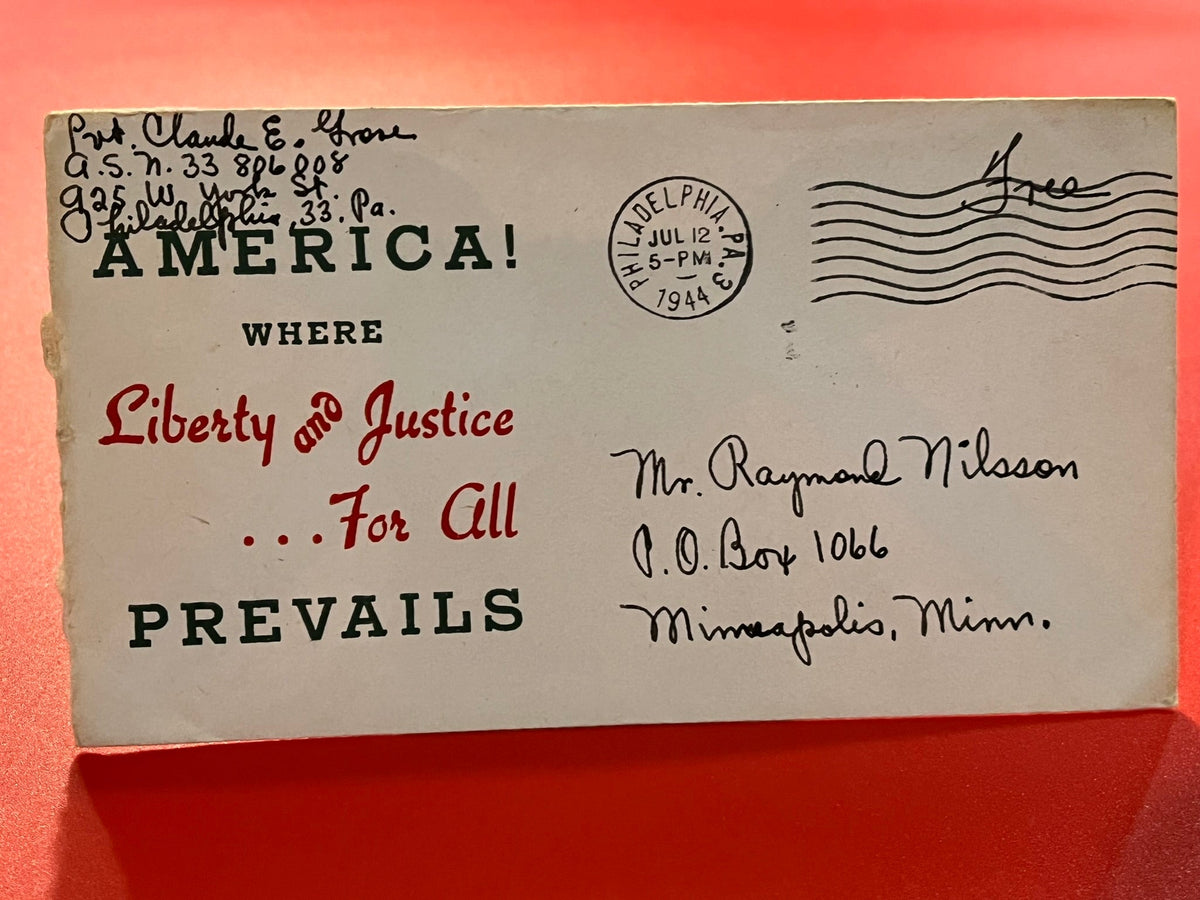 Pvt. Claude E. Grose
A.S.N. 33 806 808
925 W. York St.
Philadelphia, 33, Pa.
AMERICA!
WHERE
Liberty and Justice
...For All
PREVAILS
PHILADELPHIA, PA. 3
JUL 12
5-PM
1944
Free
Mr. Raymond Nilsson
P.O. Box 1066
Minneapolis, Minn.